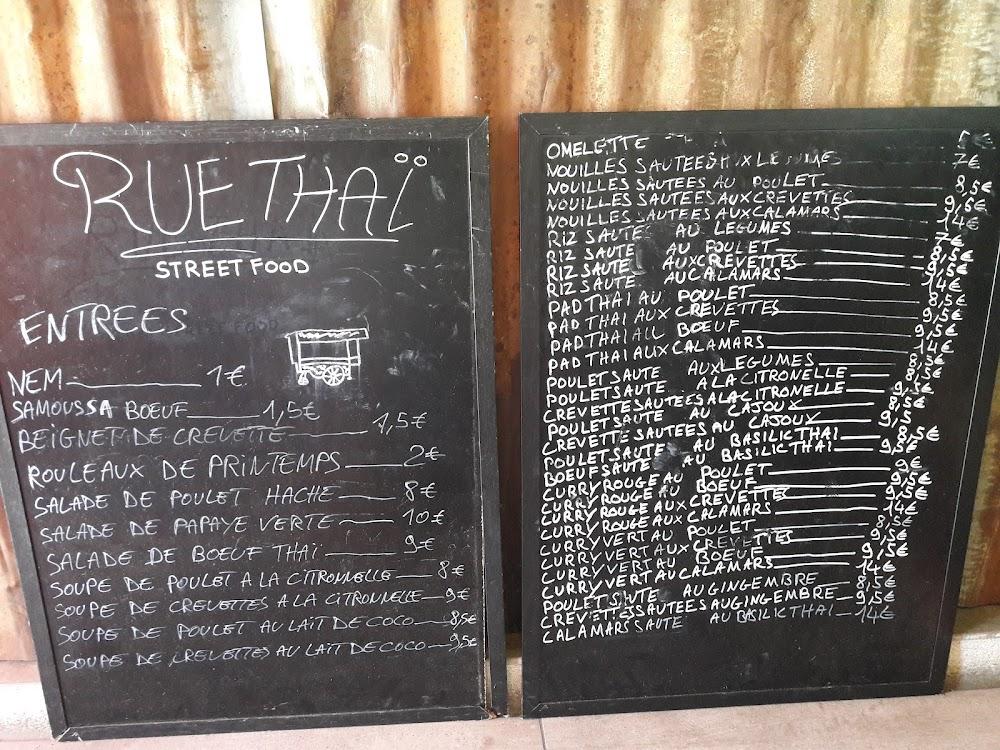 RUE THAÏ
STREET FOOD
ENTREES
NEM 1€
SAMOUSSA BOEUF 1,5€
BEIGNET DE CREVETTE 1,5€
ROULEAUX DE PRINTEMPS 2€
SALADE DE POULET HACHE 8€
SALADE DE PAPAYE VERTE 10€
SALADE DE BOEUF THAÏ 9€
SOUPE DE POULET A LA CITRONNELLE 8€
SOUPE DE CREVETTES A LA CITRONNELLE 9€
SOUPE DE POULET AU LAIT DE COCO 8,5€
SOUPE DE CREVETTES AU LAIT DE COCO 9,5€
OMELETTE
NOUILLES SAUTEES AUX LEGUMES 7€
NOUILLES SAUTEES AU POULET 8,5€
NOUILLES SAUTEES AUX CREVETTES 9,5€
NOUILLES SAUTEES AUX CALAMARS 14€
RIZ SAUTE AU LEGUMES 7€
RIZ SAUTE AU POULET 8,5€
RIZ SAUTE AUX CREVETTES 9,5€
RIZ SAUTE AU CALAMARS 14€
PAD THAI AU POULET 8,5€
PAD THAI AUX CREVETTES 9,5€
PAD THAI AU BOEUF 9,5€
PAD THAI AUX CALAMARS 14€
POULET SAUTE AUX LEGUMES
POULET SAUTE A LA CITRONELLE
CREVETTE SAUTEES A LA CITRONELLE
POULET SAUTE AU CAJOUX
CREVETTE SAUTEES AU CAJOUX
POULET SAUTE AU BASILIC THAI
BOEUF SAUTE AU BASILIC THAI
CURRY ROUGE AU POULET 9€
CURRY ROUGE AU BOEUF 9,5€
CURRY ROUGE AUX CREVETTES 9,5€
CURRY ROUGE AUX CALAMARS 14€
CURRY VERT AU POULET 8,5€
CURRY VERT AUX CREVETTES 9,5€
CURRY VERT AU BOEUF 9,5€
CURRY VERT AU CALAMARS 14€
POULET SAUTE AU GINGEMBRE 8,5€
CREVETTES SAUTEES AU GINGEMBRE 9,5€
CALAMARS SAUTE AU BASILIC THAI 14€